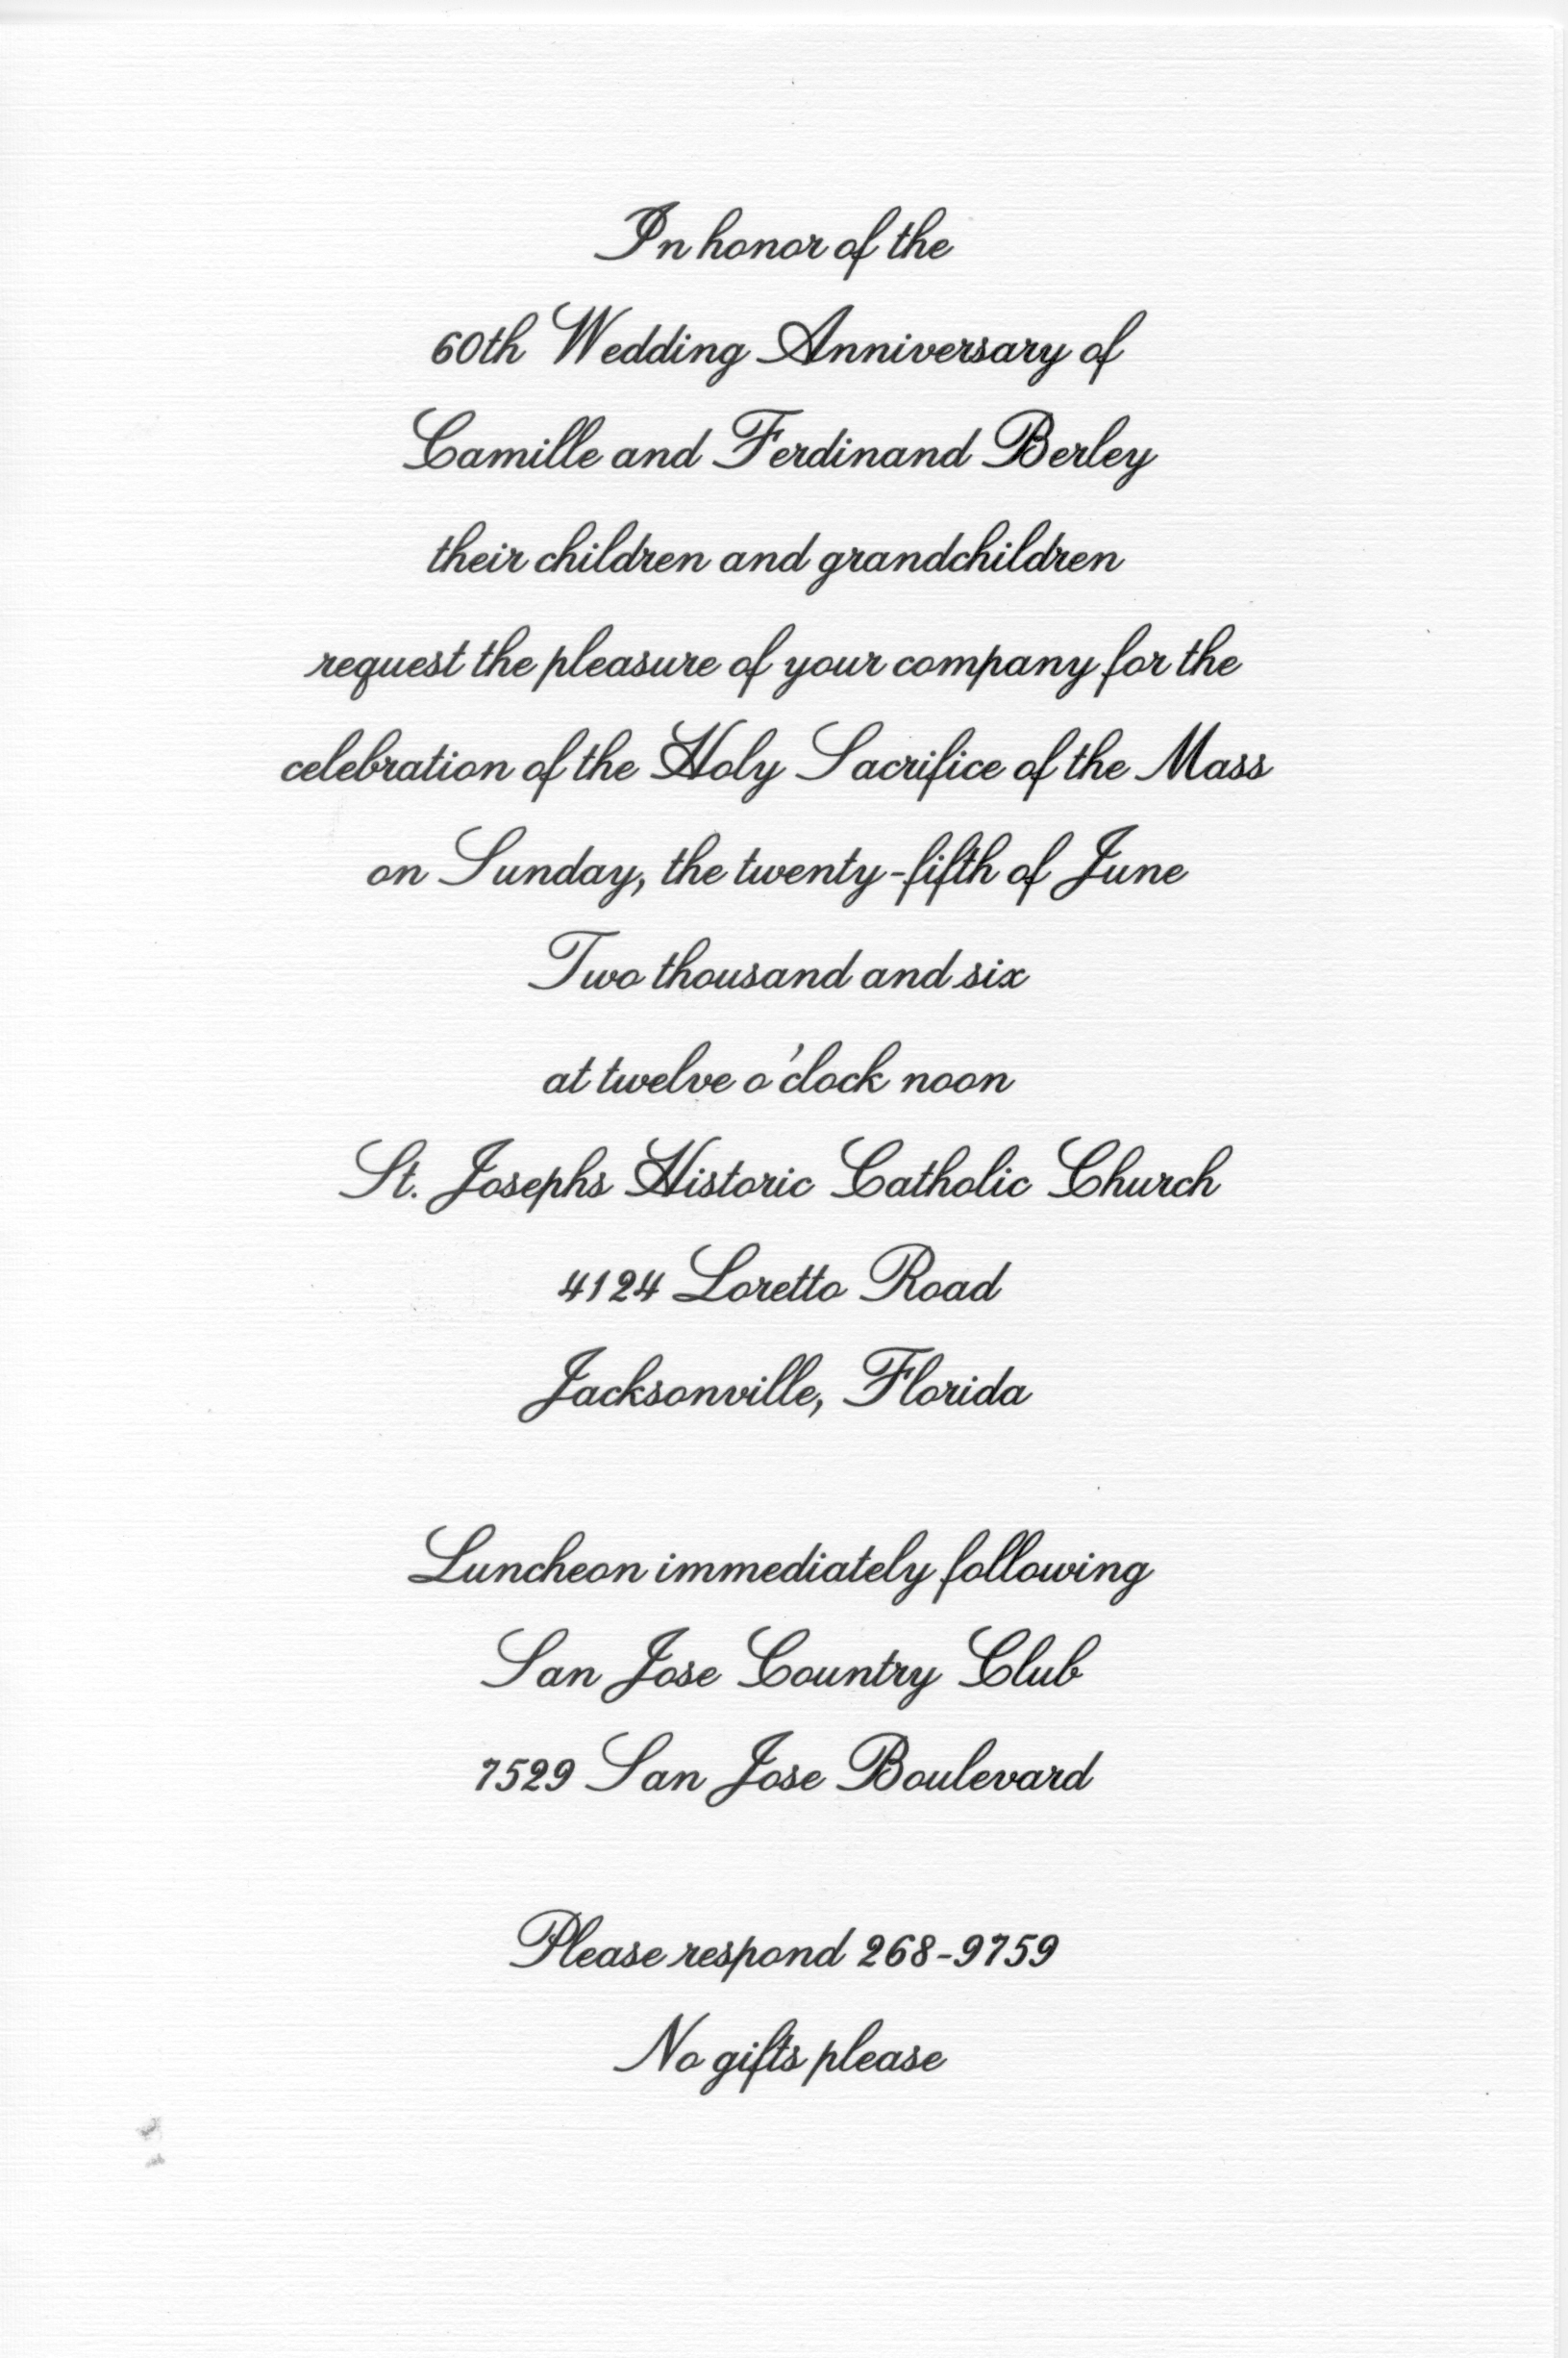 In honor of the
60th Wedding Anniversary of
Camille and Ferdinand Berley
their children and grandchildren
request the pleasure of your company for the
celebration of the Holy Sacrifice of the Mass
on Sunday, the twenty-fifth of June
Two thousand and six
at twelve o'clock noon
St. Josephs Historic Catholic Church
4124 Loretto Road
Jacksonville, Florida
Luncheon immediately following
San Jose Country Club
7529 San Jose Boulevard
Please respond 268-9759
No gifts please